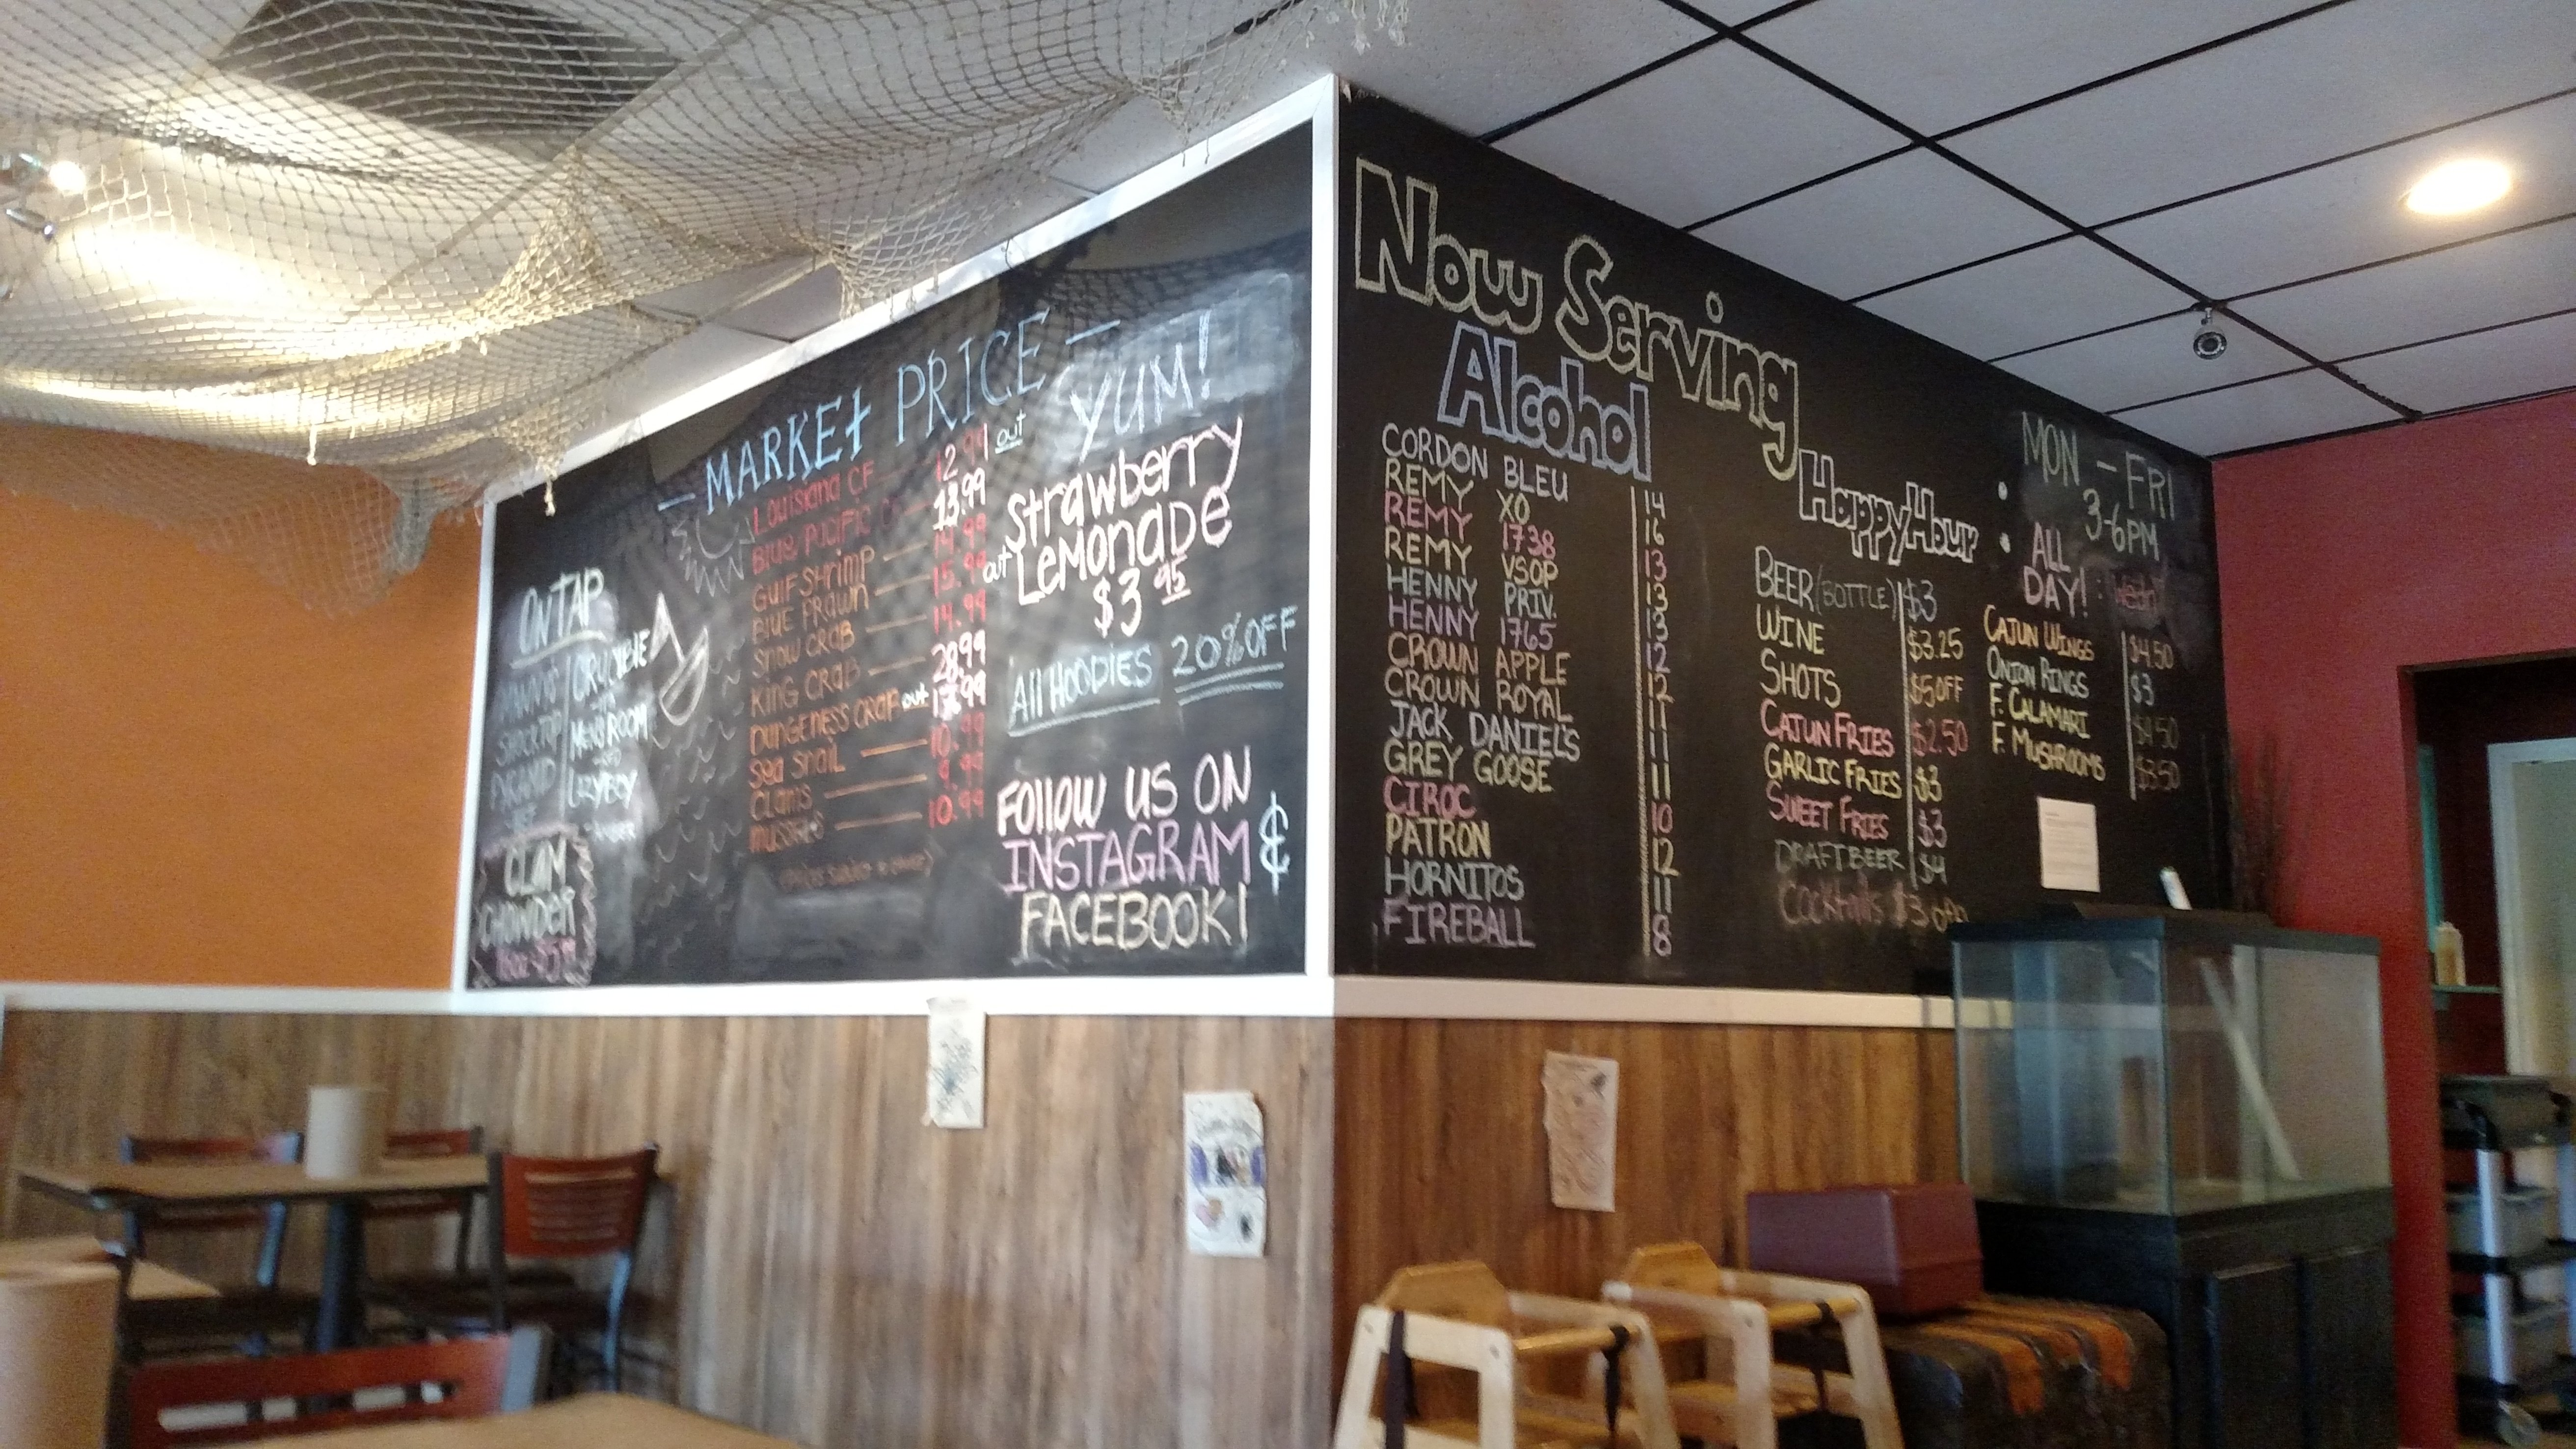 — MARKET PRICE —
Louisiana CF — 12.99 out
Blue Pacific CF — 13.99
Gulf Shrimp — 14.99
Blue Prawn — 15.99 out
Snow Crab — 14.99
King Crab — 28.99
Dungeness Crab out 17.99
Sea Snail — 10.99
Clams — 9.99
Mussels — 10.99
ON TAP
SHOCK TOP
CLAM
CHOWDER
YUM!
Strawberry
LEMONADE
$3.95
All HOODIES 20% OFF
FOLLOW US ON
INSTAGRAM &
FACEBOOK!
Now Serving
Alcohol
CORDON BLEU 14
REMY XO 16
REMY 1738 13
REMY VSOP 13
HENNY PRIV. 13
HENNY 1765 12
CROWN APPLE 12
CROWN ROYAL 11
JACK DANIEL'S 11
GREY GOOSE 11
CIROC 10
PATRON 12
HORNITOS 11
FIREBALL 8
Happy Hour
• MON - FRI
3-6PM
• ALL
DAY!
BEER (BOTTLE) $3
WINE $3.25
SHOTS $5 OFF
CAJUN FRIES $2.50
GARLIC FRIES $3
SWEET FRIES $3
DRAFT BEER $4
Cocktails $3 OFF
CAJUN WINGS $4.50
ONION RINGS $3
F. CALAMARI $4.50
F. MUSHROOMS $3.50